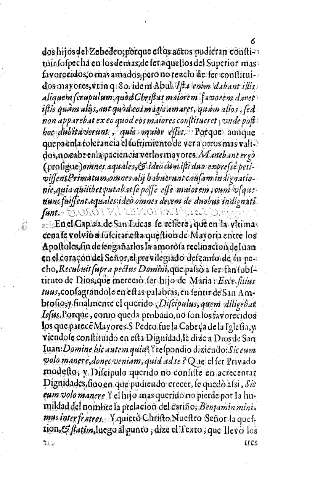 6
dos hijos del Zebedeo; porque estos actos pudieran consti-
tuir sospecha en los demas, de ser aquellos del Superior mas
favorecidos, o mas amados, pero no tenerlo de ser constitui-
dos mayores, vt in q. 80. idem Abul. Ista enim dabant istis
aliquem scrupulum, quod Christus maiorem favorem daret
istis quàm alijs, aut quòd eos magis amaret, quàm alios, sed
non apparebat ex eo quod eos maiores constitueret; unde post
hoc dubitaverunt, quis maior esset. Porque aunque
quepo en la tolerancia el sufrimiento de ver a otros mas vali-
dos, no cabe en la paciencia verlos mayores. Manebant ergò
(prosigue) omnes æquales, & ideo cum isti duo expresse peti-
vissent Primatum, omnes alij habuerunt causam indignatio-
nis, quia quilibet putabat se posse esse maiorem, cum usque
nunc fuissent æquales: ideò omnes decem de duobus indignati
sunt.
En el Cap. 22. de San Lucas se refiere, que en la vltima
cena se volviò a suscitar esta question de Mayoria entre los
Apostoles, sin desengañarlos la amorosa reclinacion de Iuan
en el coraçon del Señor, el previlegiado descanso de su pe-
cho, Recubuit supra pectus Domini, que passò a ser su substi-
tuto de Dios, que mereciò ser hijo de Maria: Ecce filius
tuus, consagrandole en estas palabras, en sentir de San Am-
brosio, y finalmente el querido, Discipulus, quem diligebat
Iesus. Porque, como queda probado, no son los favorecidos
los que parecē Mayores. S. Pedro fue la Cabeça de la Iglesia, y
viendose constituido en esta Dignidad, le dize a Dios de San
Iuan: Domine hic autem quid? Y respondio diziendo: Sic eum
volo manere, donec veniam, quid ad te? Que el ser Privado
modesto, y Discipulo querido no consiste en acrecentar
Dignidades, sino en que pudiendo crecer, se quedò assi, Sic
eum volo manere Y el hijo mas querido no pierde por la hu-
mildad del nombre la prelacion del cariño; Benjamin mini-
mus inter fratres. Y quietò Christo Nuestro Señor la ques-
tion, & statim, luego al punto, dize el Texto, que llevò los
tres